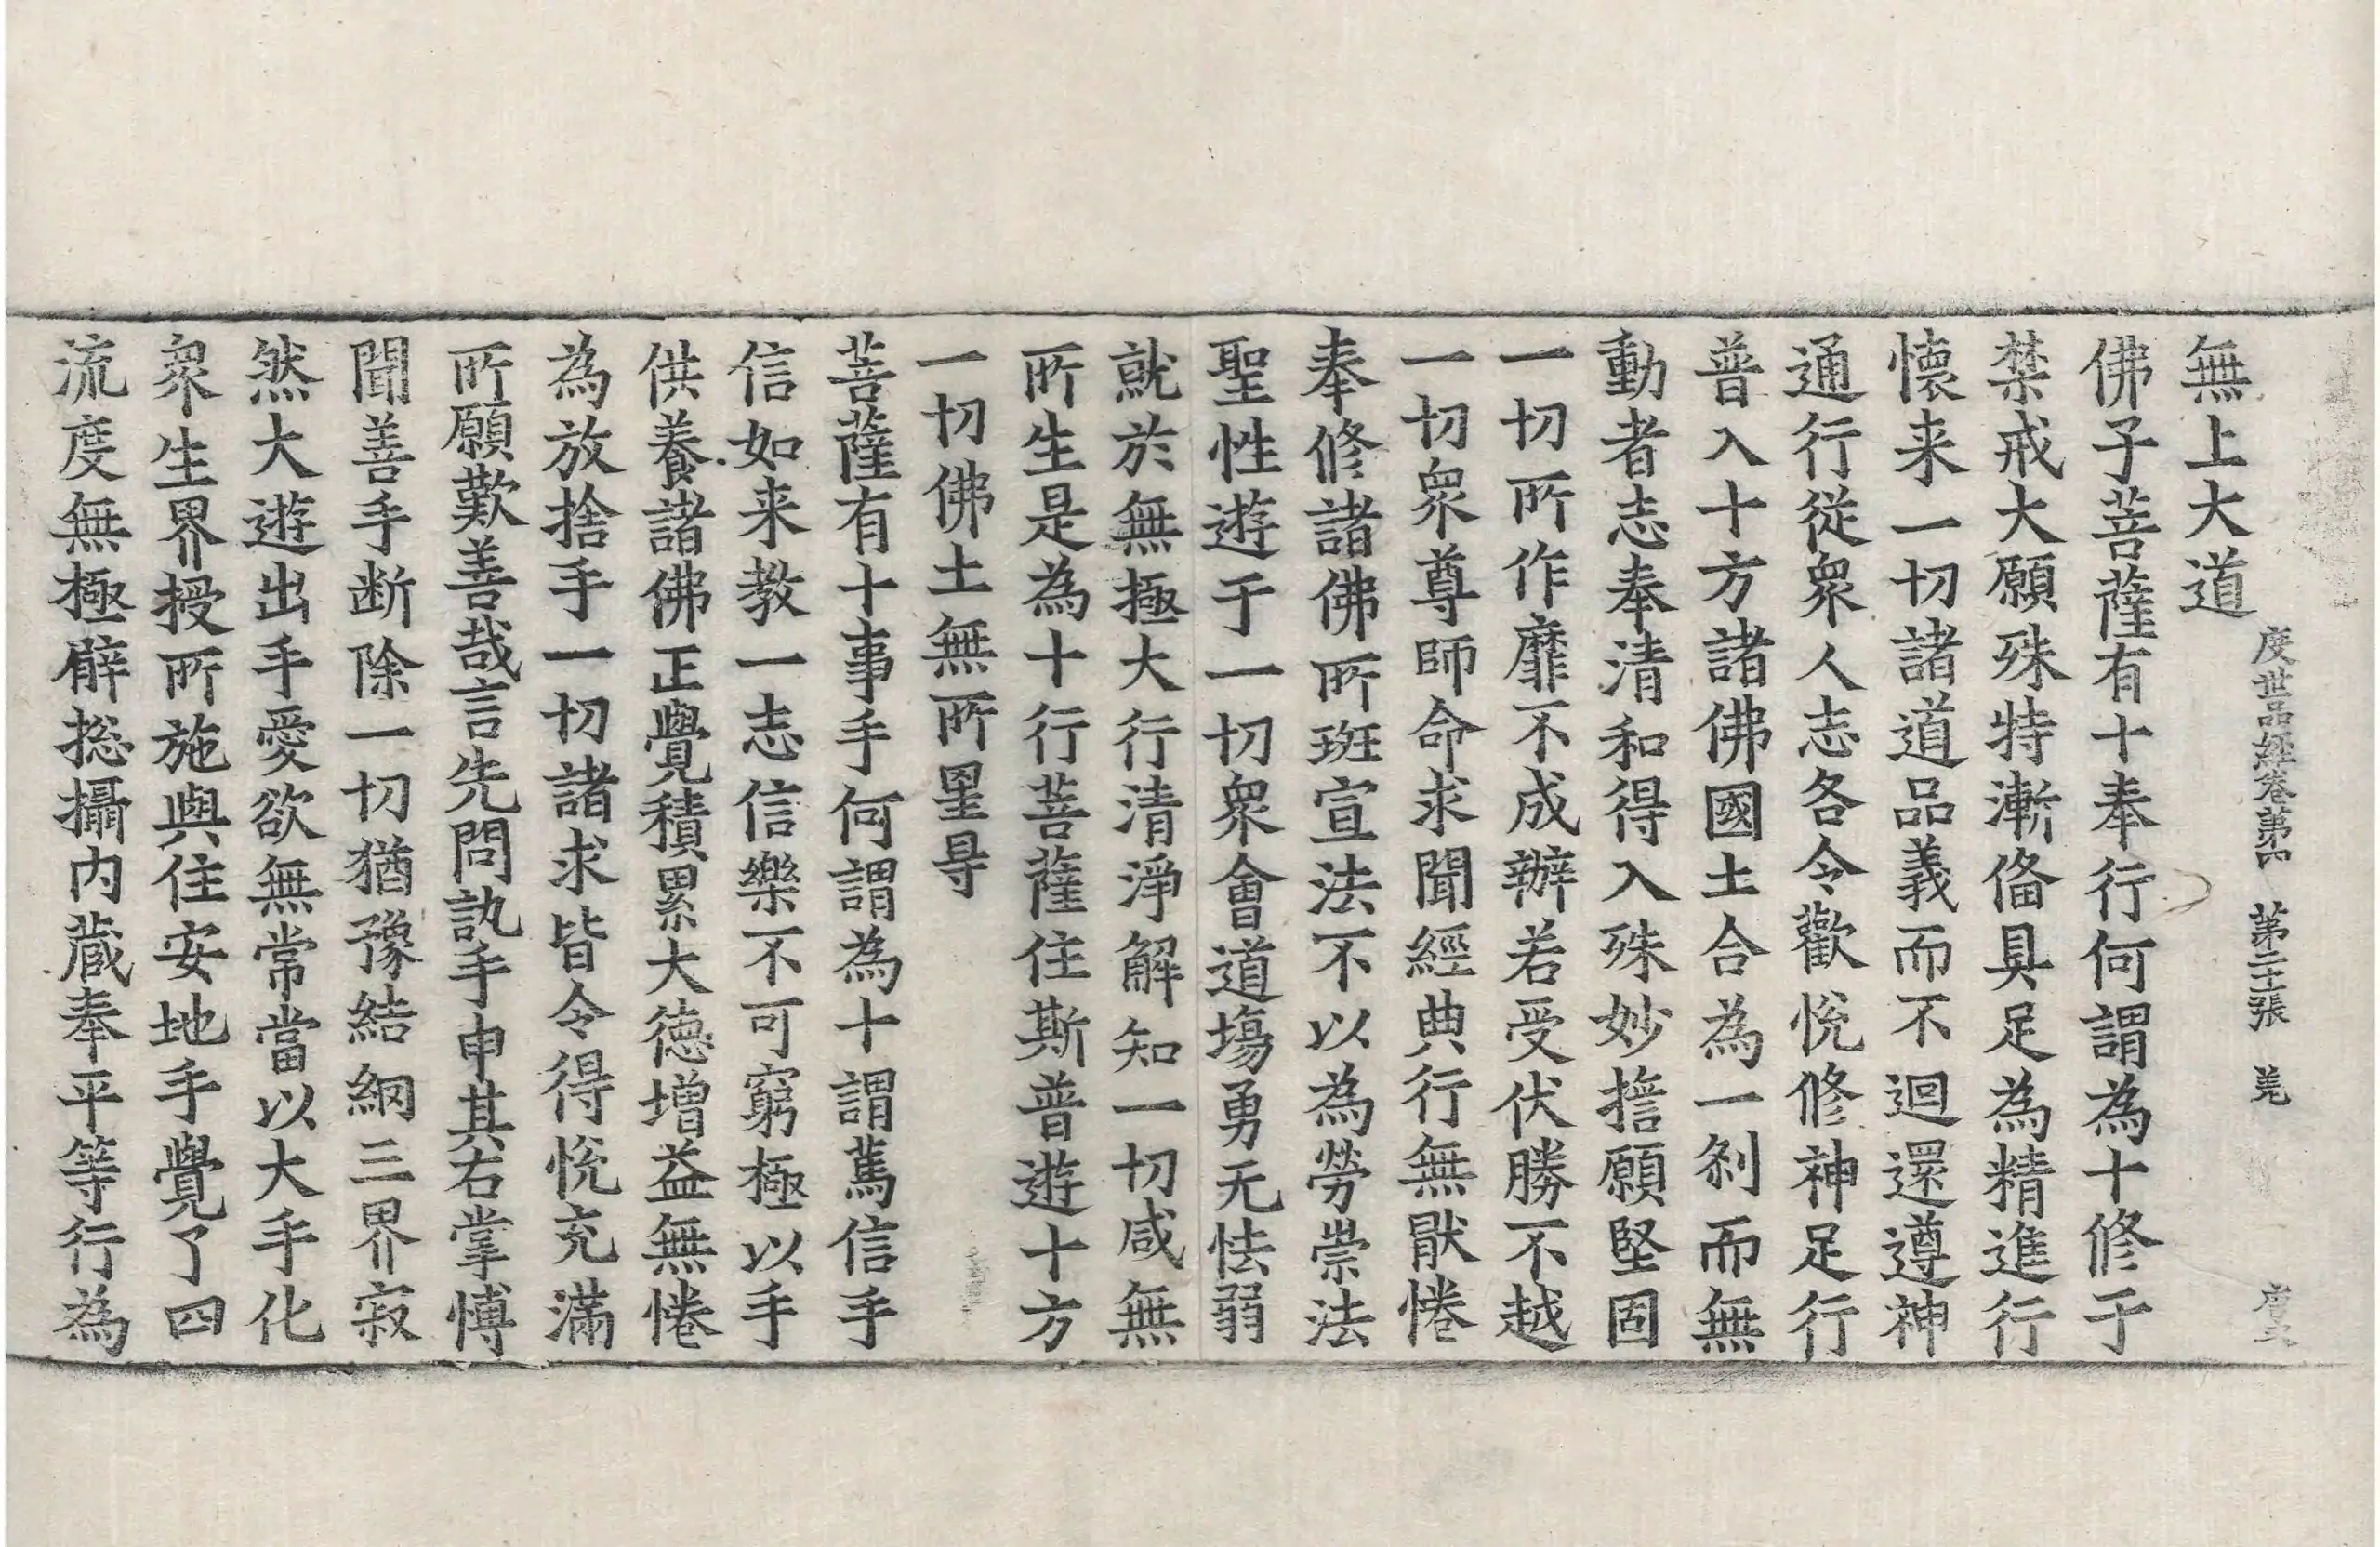 度世品經卷第四　第二十張　羌
無上大道
佛子菩薩有十奉行何謂為十修于
禁戒大願殊特漸俻具足為精進行
懷来一切諸道品義而不迴還遵神
通行從衆人志各令歡悅修神足行
普入十方諸佛國土合為一刹而無
動者志奉清和得入殊妙擔願堅固
一切所作靡不成辦若受伏勝不越
一切衆尊師命求聞經典行無猒惓
奉修諸佛所班宣法不以為勞崇法
聖性遊于一切衆會道塲勇无怯弱
就於無極大行清淨解知一切咸無
所生是為十行菩薩住斯普遊十方
一切佛土無所罣㝵
菩薩有十事手何謂為十謂篤信手
信如来教一志信樂不可窮極以手
供養諸佛正覺積累大德增益無惓
為放捨手一切諸求皆令得悅充滿
所願歎善哉言先問訊手申其右掌博
聞善手断除一切猶豫結網三界寂
然大遊出手愛欲無常當以大手化
衆生界授所施與住安地手覺了四
流度無極辟捴攝内藏奉平等行為